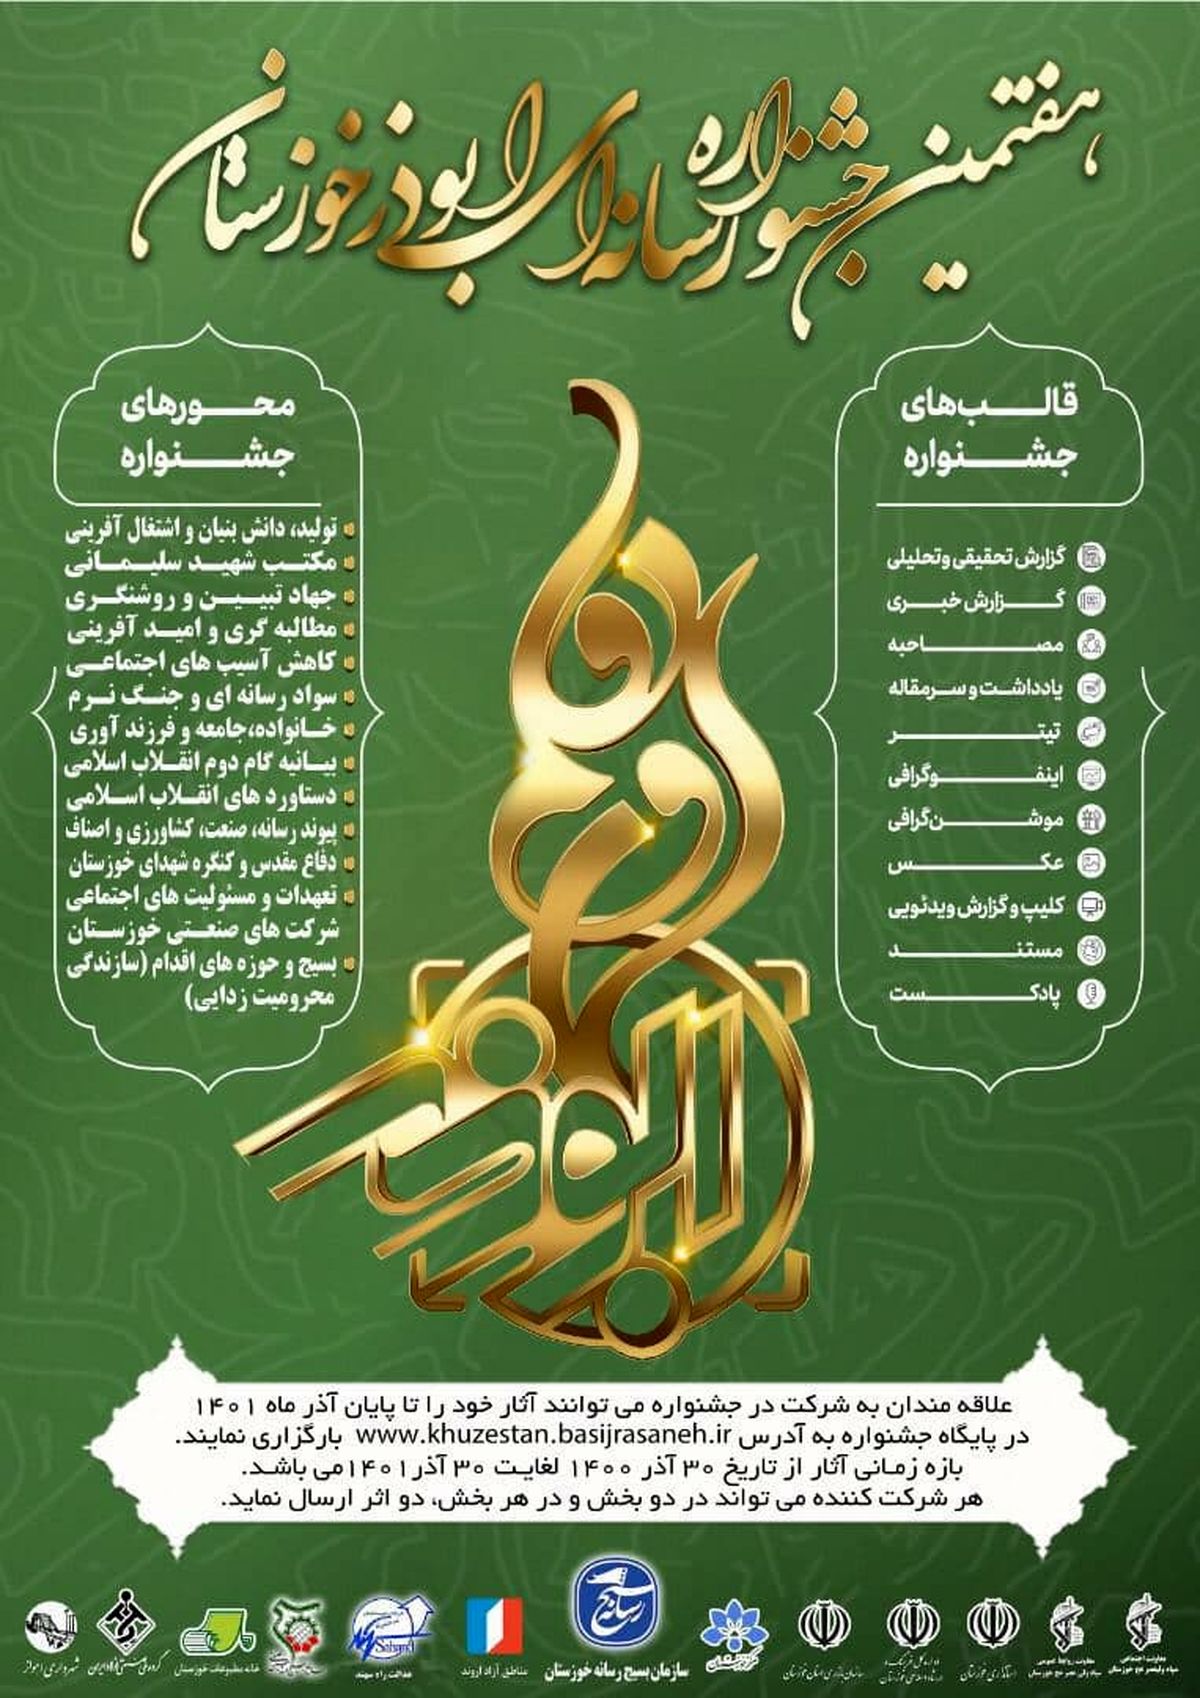 هفتمین جشنواره رسانه ای ابوذر خوزستان
قالب‌های
جشنواره
گزارش تحقیقی و تحلیلی
گزارش خبری
مصاحبه
یادداشت و سرمقاله
تیتر
اینفوگرافی
موشن‌گرافی
عکس
کلیپ و گزارش ویدئویی
مستند
پادکست
محورهای
جشنواره
تولید، دانش بنیان و اشتغال آفرینی
مکتب شهید سلیمانی
جهاد تبیین و روشنگری
مطالبه گری و امید آفرینی
کاهش آسیب های اجتماعی
سواد رسانه ای و جنگ نرم
خانواده،جامعه و فرزند آوری
بیانیه گام دوم انقلاب اسلامی
دستاورد های انقلاب اسلامی
پیوند رسانه، صنعت، کشاورزی و اصناف
دفاع مقدس و کنگره شهدای خوزستان
تعهدات و مسئولیت های اجتماعی
شرکت های صنعتی خوزستان
بسیج و حوزه های اقدام (سازندگی
محرومیت زدایی)
ابوذر
علاقه مندان به شرکت در جشنواره می توانند آثار خود را تا پایان آذر ماه ۱۴۰۱
در پایگاه جشنواره به آدرس www.khuzestan.basijrasaneh.ir بارگزاری نمایند.
بازه زمانی آثار از تاریخ ۳۰ آذر ۱۴۰۰ لغایت ۳۰ آذر۱۴۰۱می باشد.
هر شرکت کننده می تواند در دو بخش و در هر بخش، دو اثر ارسال نماید.
بسیج رسانه
سازمان بسیج رسانه خوزستان
مناطق آزاد اروند
Sahand
عدالت راه سهند
خانه مطبوعات خوزستان
شهرداری اهواز
استانداری خوزستان